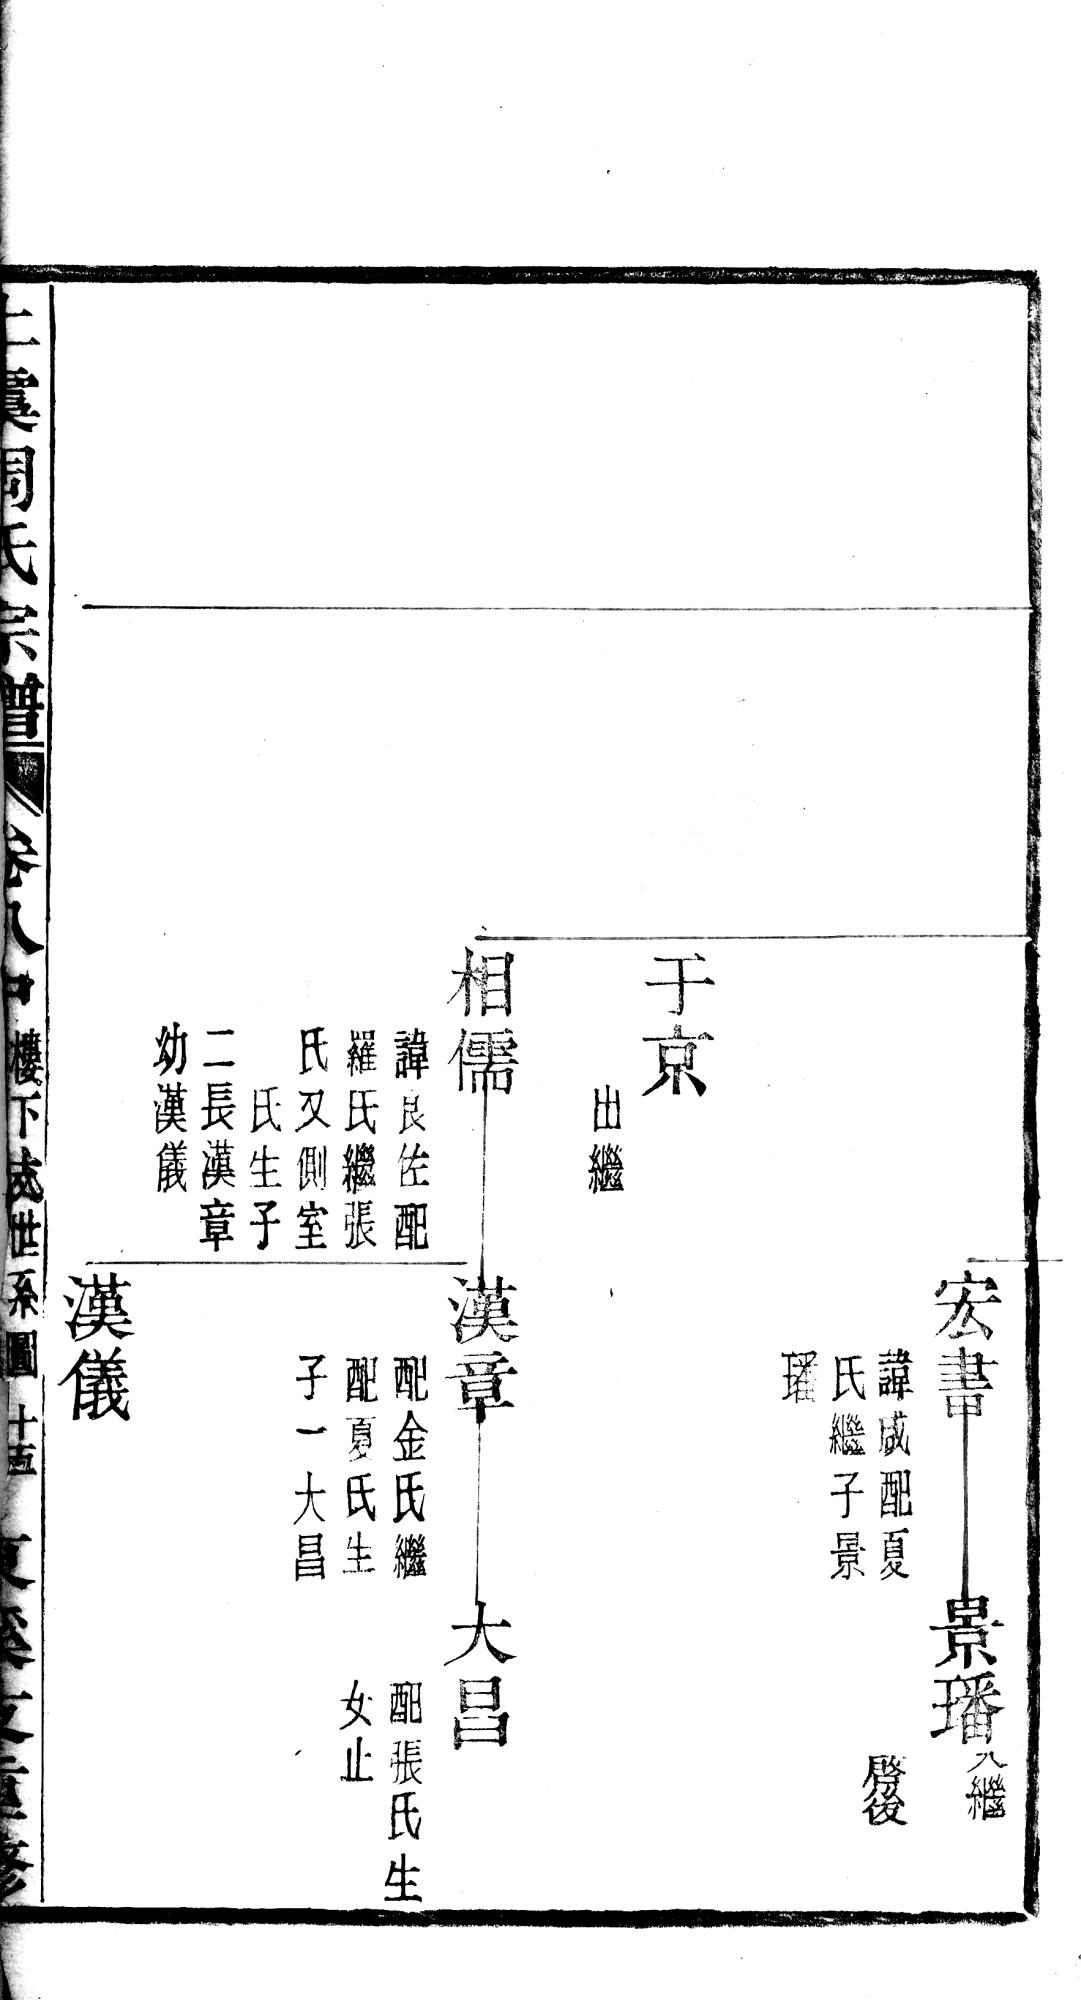 宏書
諱咸配夏
氏繼子景
璠
景璠
入繼
啓後
于京
出繼
相儒
諱良佐配
羅氏繼張
氏又側室
氏生子
二長漢章
幼漢儀
漢章
配金氏繼
配夏氏生
子一大昌
大昌
配張氏生
女止
漢儀
上虞周氏宗譜
卷八中
樓下 世系圖
十五